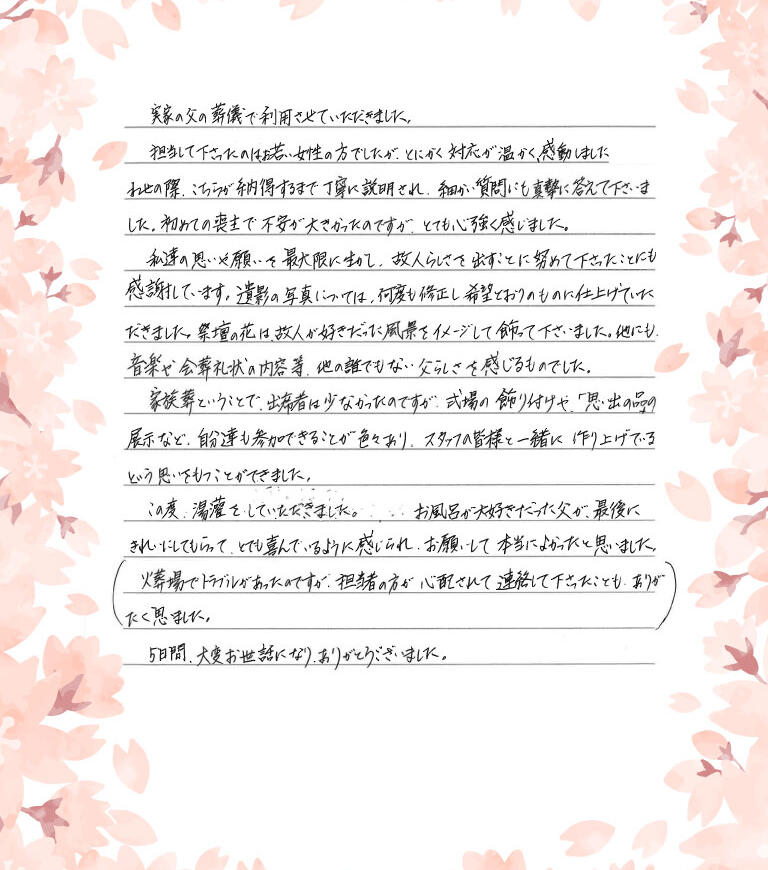 実家の父の葬儀で利用させていただきました。
担当して下さったのはお若い女性の方でしたが、とにかく対応が温かく、感動しました
わせの際、こちらが納得するまで丁寧に説明され、細かい質問にも真摯に答えて下さいま
した。初めての喪主で不安が大きかったのですが、とても心強く感じました。
私達の思いや願いを最大限に生かし、故人らしさを出すことに努めて下さったことにも
感謝しています。遺影の写真については、何度も修正し希望どおりのものに仕上げていた
だきました。祭壇の花は、故人が好きだった風景をイメージして飾って下さいました。他にも、
音楽や会葬礼状の内容等、他の誰でもない父らしさを感じるものでした。
家族葬ということで、出席者は少なかったのですが、式場の飾り付けや、「思い出の品」の
展示など、自分達も参加できることが色々あり、スタッフの皆様と一緒に作り上げている
という思いをもつことができました。
この度、湯灌をしていただきました。お風呂が大好きだった父が、最後に
きれいにしてもらって、とても喜んでいるように感じられ、お願いして本当によかったと思いました。
(火葬場でトラブルがあったのですが、担当者の方が心配されて連絡して下さったことも、ありが
たく思いました。)
5日間、大変お世話になり、ありがとうございました。